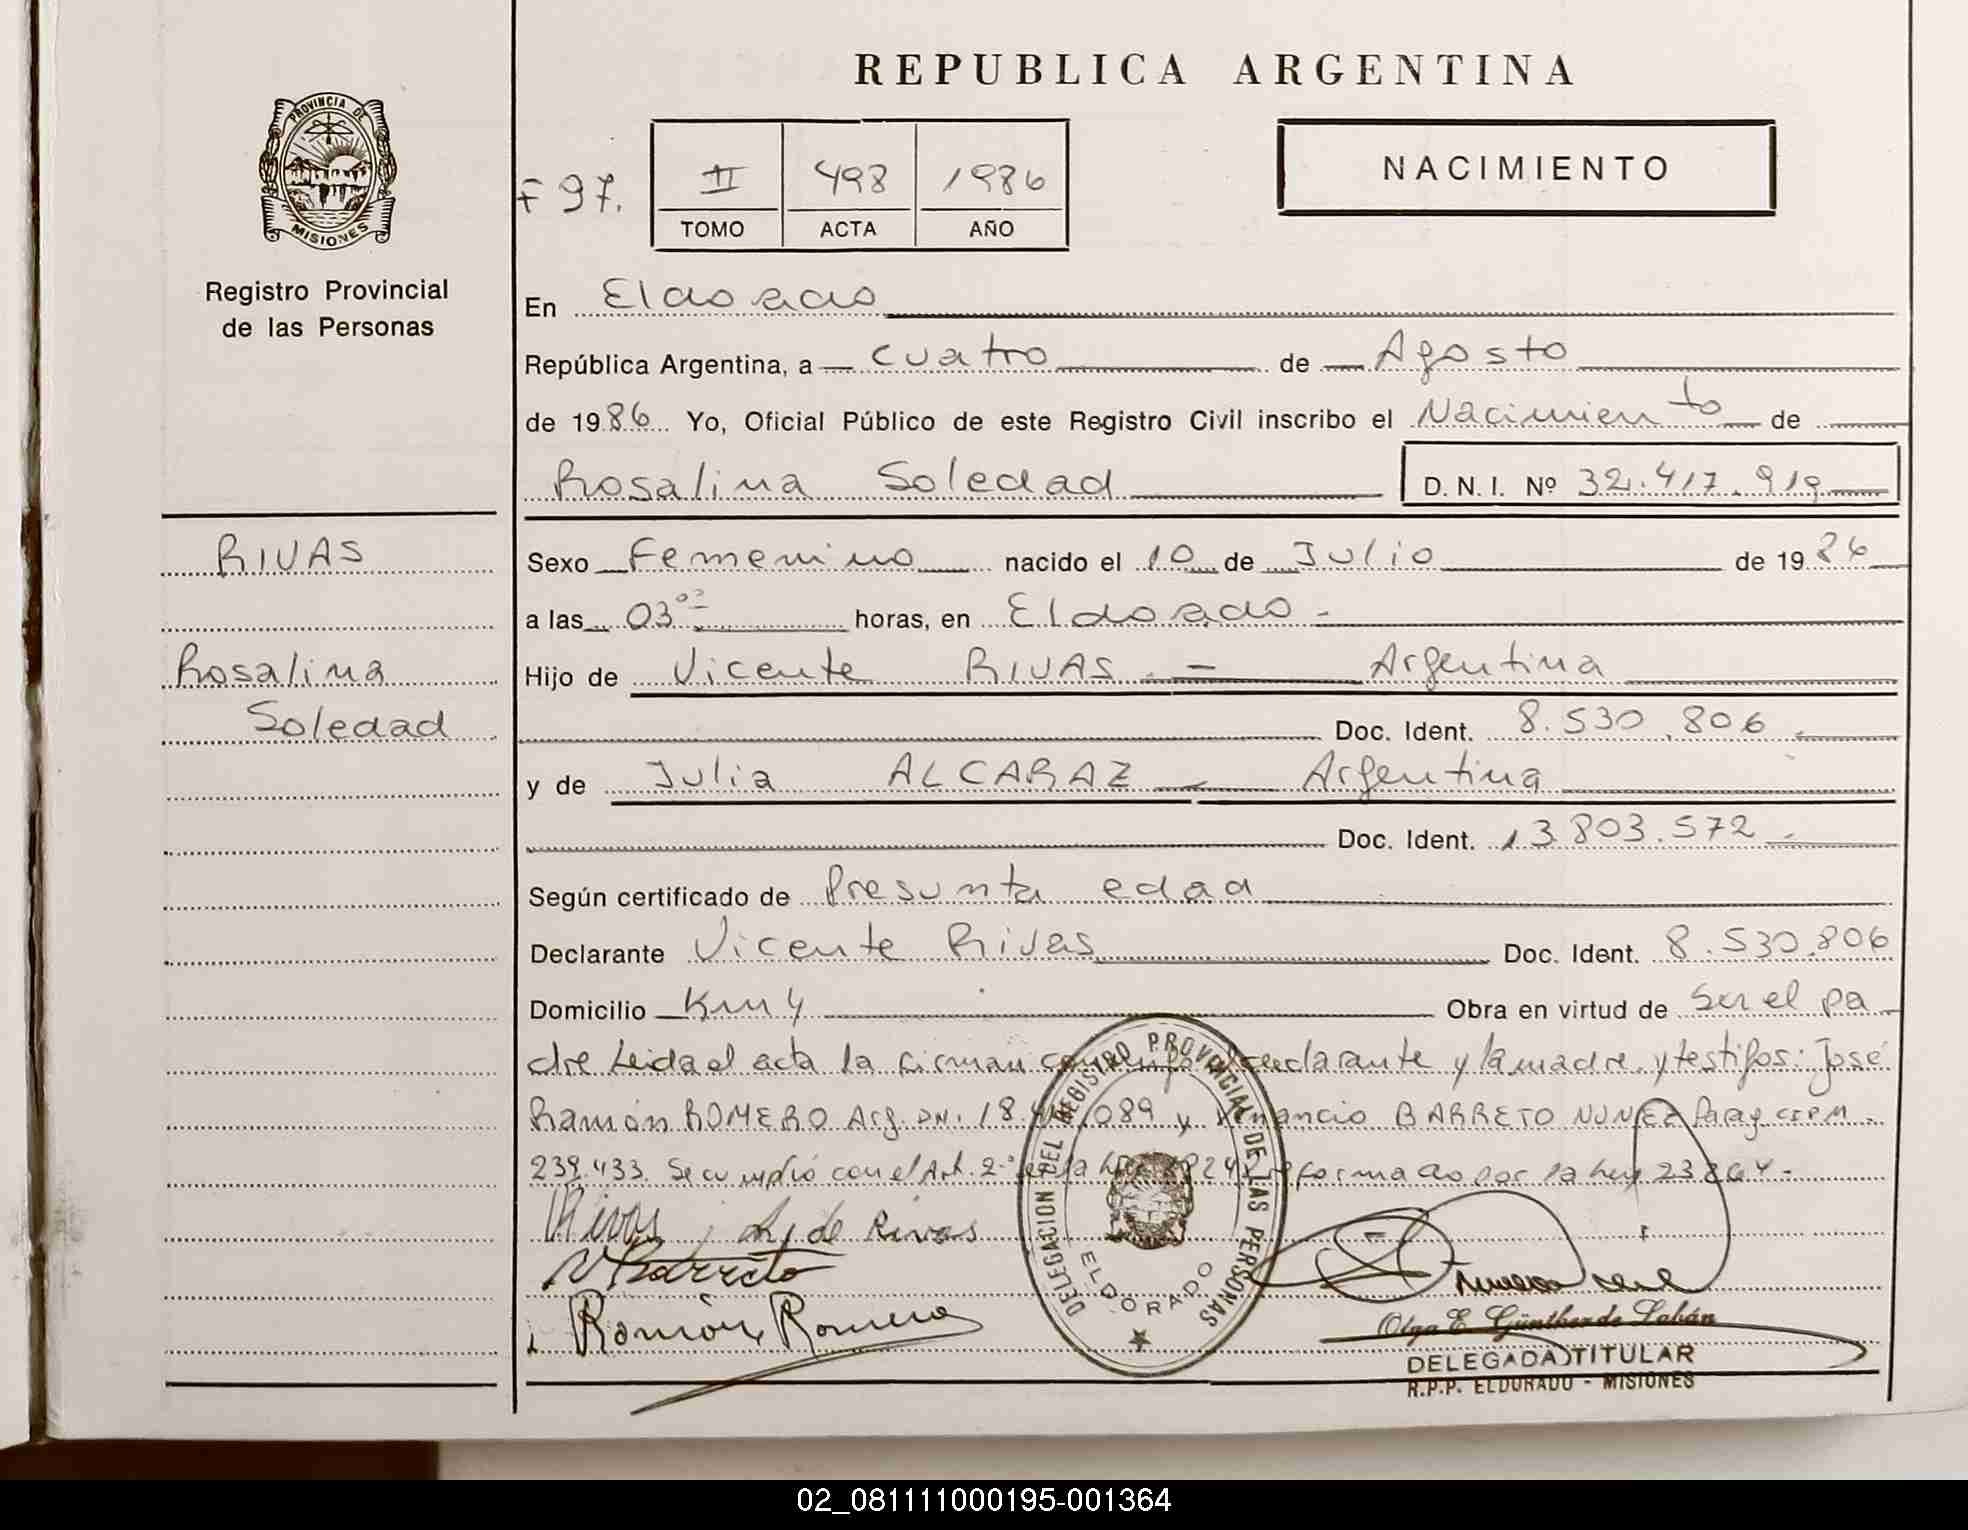 REPUBLICA ARGENTINA
PROVINCIA DE
MISIONES
Registro Provincial
de las Personas
F 97.
II 498 1986
TOMO ACTA AÑO
NACIMIENTO
En Eldorado
República Argentina, a cuatro de Agosto
de 1986 Yo, Oficial Público de este Registro Civil inscribo el Nacimiento de
Rosalina Soledad D. N. I. Nº 32.417.919
RIVAS
Rosalina
Soledad
Sexo Femenino nacido el 10 de Julio de 1986
a las 03 horas, en Eldorado
Hijo de Vicente RIVAS Argentina
Doc. Ident. 8.530.806
y de Julia ALCARAZ Argentina
Doc. Ident. 13.803.572
Según certificado de Presunta edad
Declarante Vicente Rivas Doc. Ident. 8.530.806
Domicilio Km 4 Obra en virtud de Ser el pa
dre Leida el acta la firman conmigo declarante y la madre, y testigos: José
Ramón ROMERO Arg. DNI. 18. 089 y Venancio BARRETO NUNEZ Parag. CIPM
239.433. Se cumplió con el Art. 2º de la ley reformado por la ley 23264
VRivas de Rivas
VBarreto
Ramón Romero
DELEGACION DEL REGISTRO PROVINCIAL DE LAS PERSONAS
ELDORADO
Olga E. Günther de Labán
DELEGADA TITULAR
R.P.P. ELDORADO - MISIONES
02_081111000195-001364